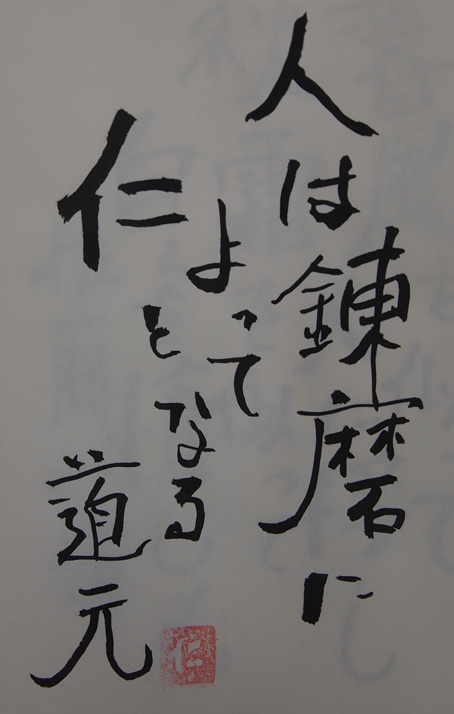 人は錬磨に
よって
仁
となる
道元
仁